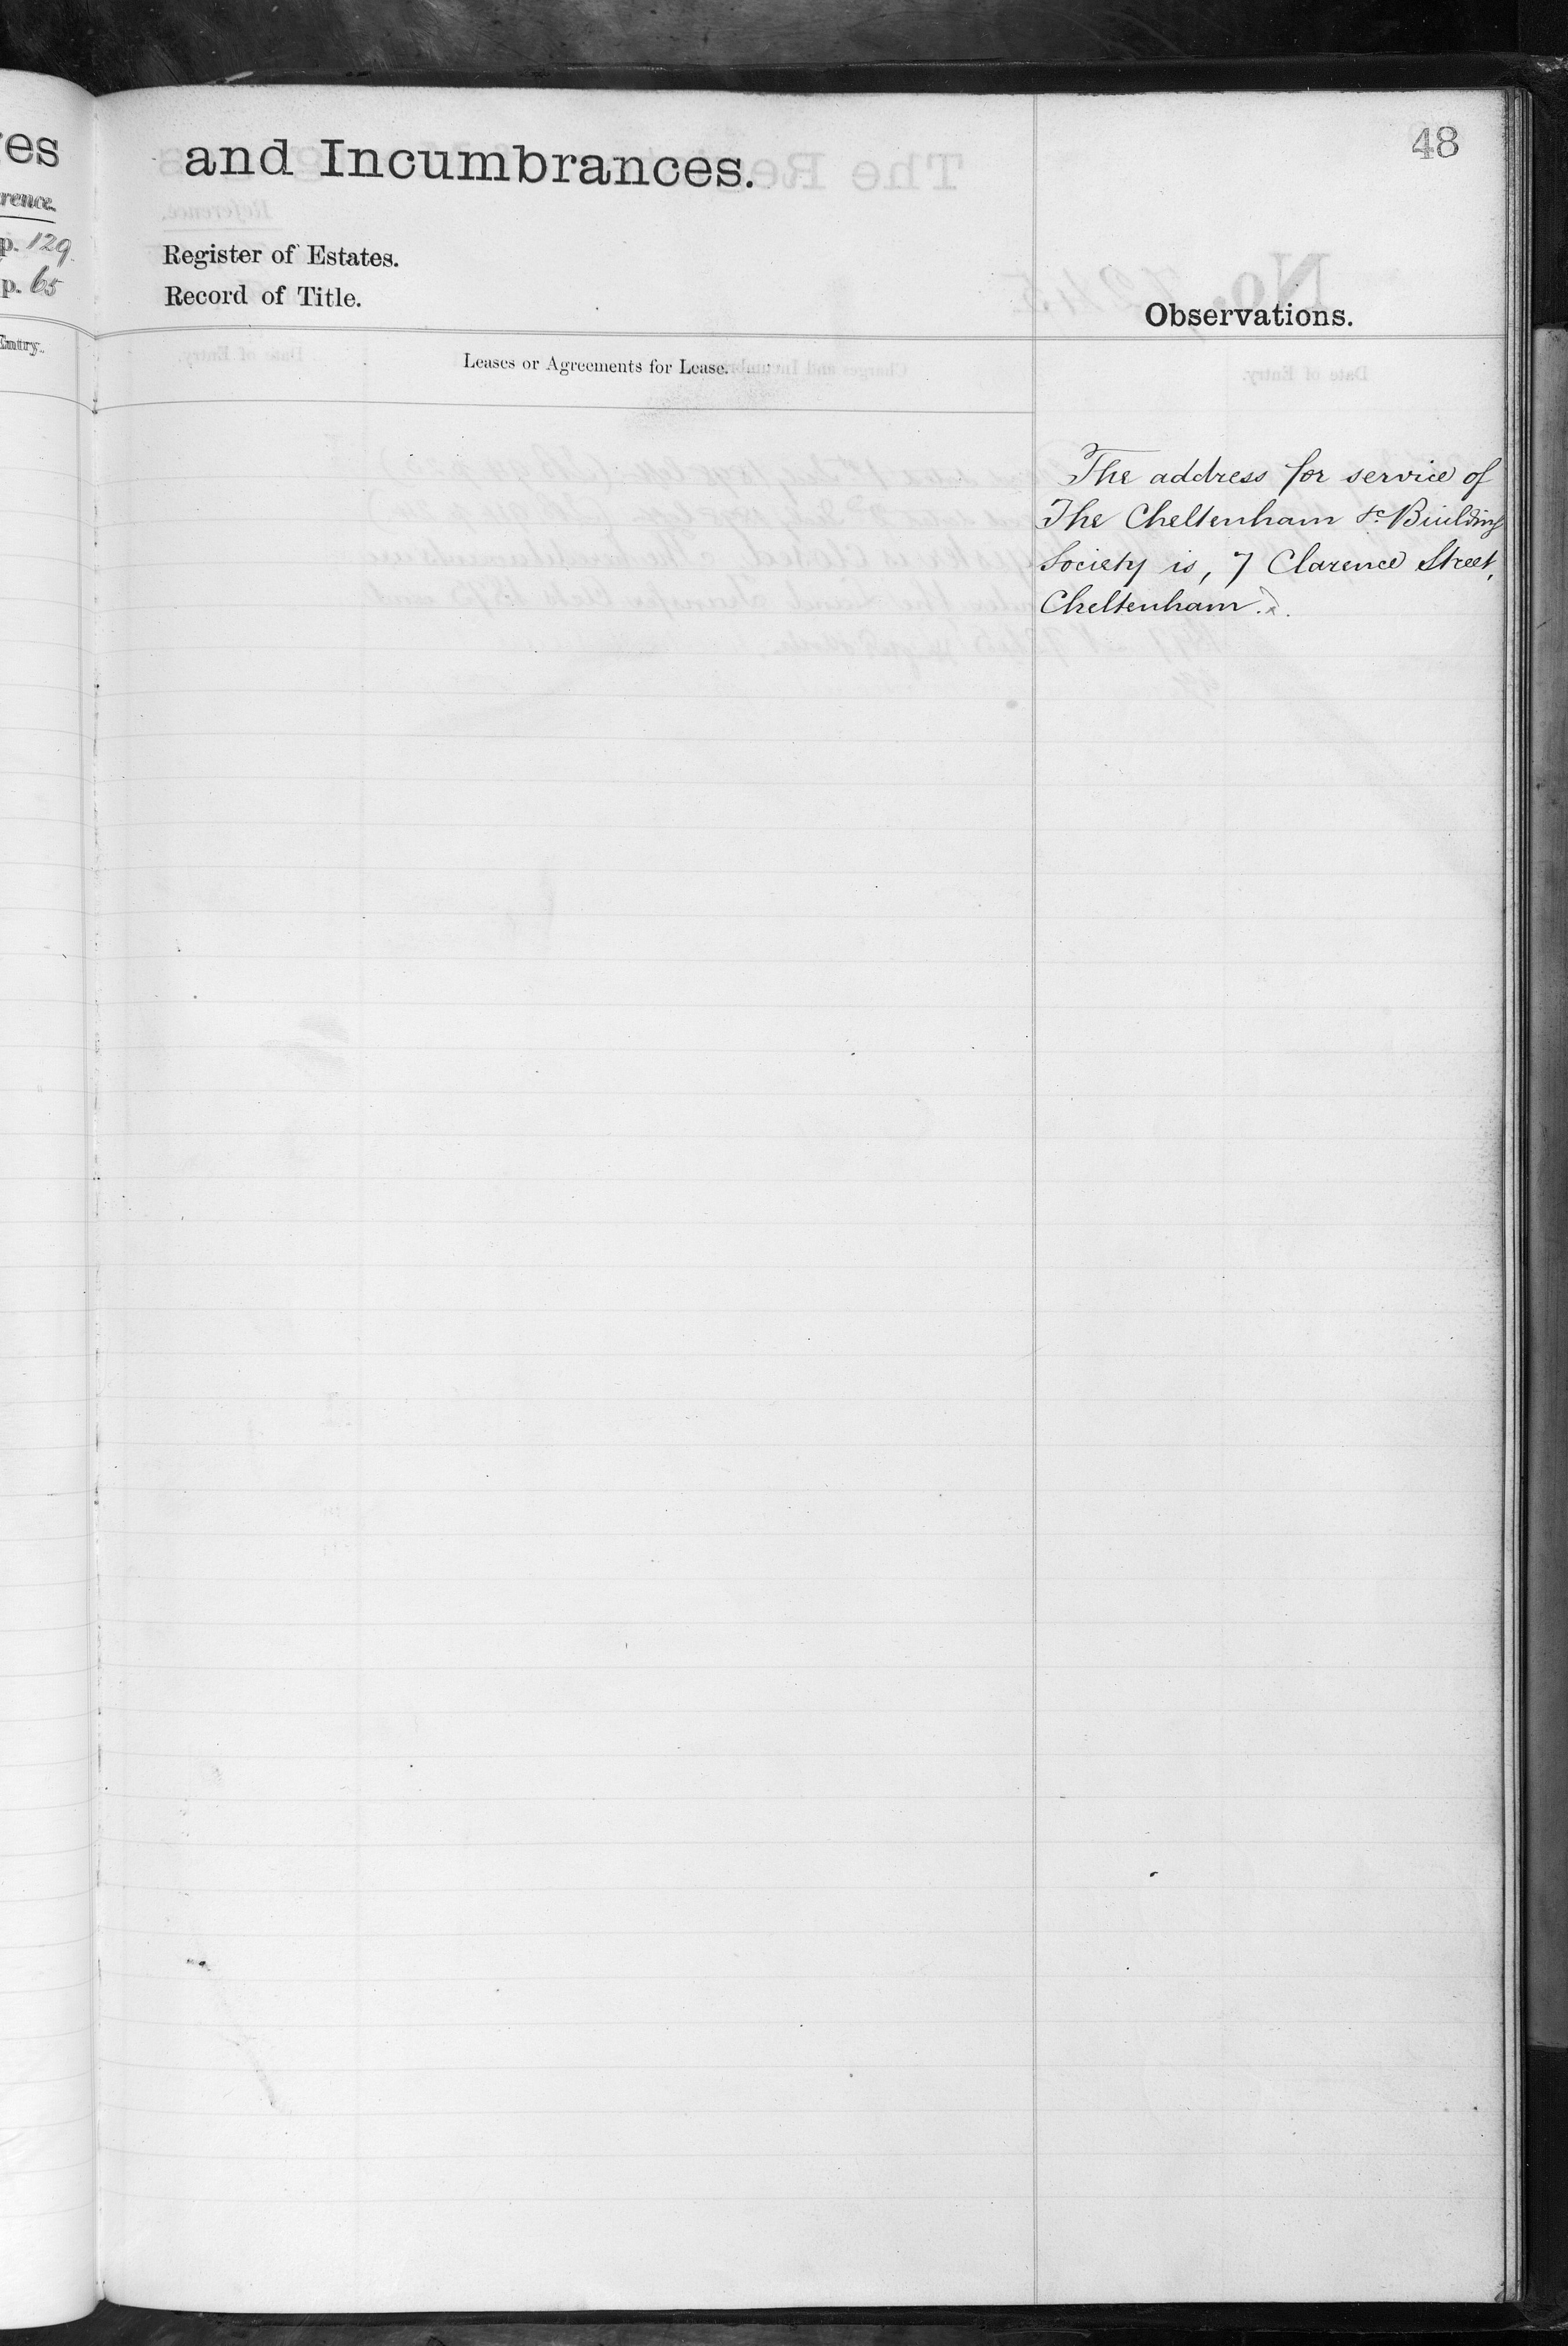 es
rence.
p. 129.
p. 65
Entry.
48
and Incumbrances.
Register of Estates.
Record of Title.
Observations.
Leases or Agreements for Lease.
The address for service of
The Cheltenham &c Building
Society is, 7 Clarence Street,
Cheltenham.